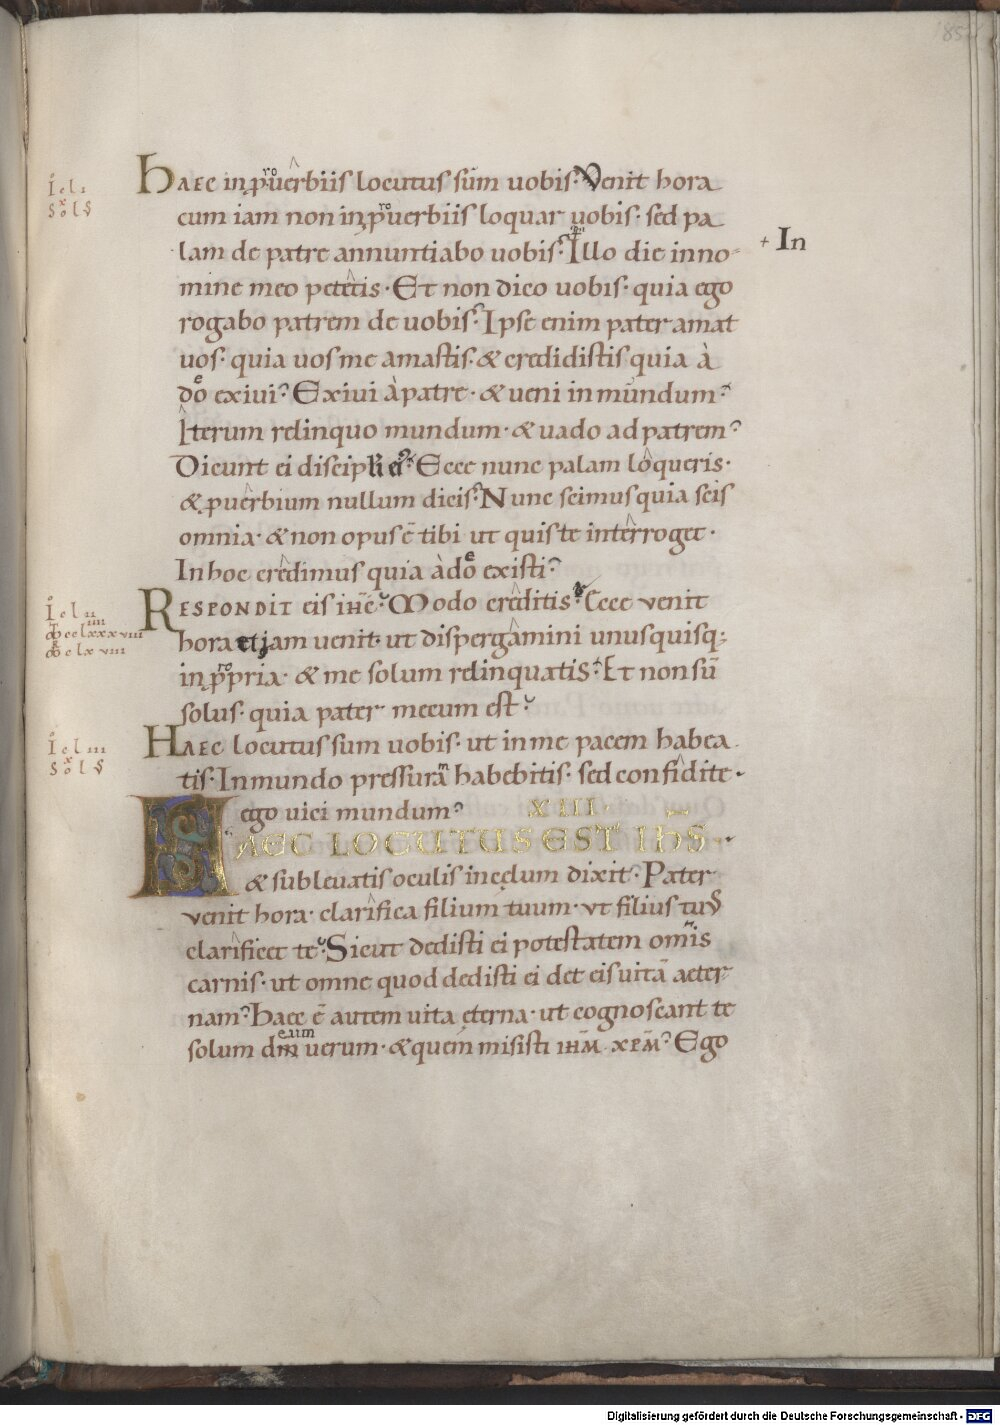 185
HAEC in ꝓuerbiis locutus sum uobis· Venit hora
cum iam non in ꝓuerbiis loquar uobis· sed pa
lam de patre annuntiabo uobis· Illo die in no
+ In
mine meo petetis· Et non dico uobis· quia ego
rogabo patrem de uobis· Ipse enim pater amat
uos· quia uos me amastis· & credidistis quia à
dō exiui· Exivi à patre· & ueni in mundum·
Iterum relinquo mundum· & uado ad patrem·
Dicunt ei discipli ei· Ecce nunc palam loqueris·
& ꝓuerbium nullum dicis· Nunc scimus quia scis
omnia· & non opus ē tibi ut quis te interroget·
In hoc credimus quia à dō existi·
RESPONDIT eis ihē· Modo creditis· Ecce venit
hora et jam uenit· ut dispergamini unusquisq;
in ꝓpria· & me solum relinquatis· Et non sū
solus· quia pater mecum est·
HAEC locutus sum uobis· ut in me pacem habea
tis· In mundo pressuram habebitis· sed confidite·
ego uici mundum·
XIII
HAEC LOCUTUS EST IHS·
& subleuatis oculis in cęlum dixit· Pater
venit hora· clarifica filium tuum· vt filius tuus
clarificet te· Sicut dedisti ei potestatem omīs
carnis· ut omne quod dedisti ei det eis uitā aeter
nam· Haec ē autem uita ęterna· ut cognoscant te
eum
solum dm̄ uerum· & quem misisti ihm̄ xpm̄· Ego
Digitalisierung gefördert durch die Deutsche Forschungsgemeinschaft - DFG